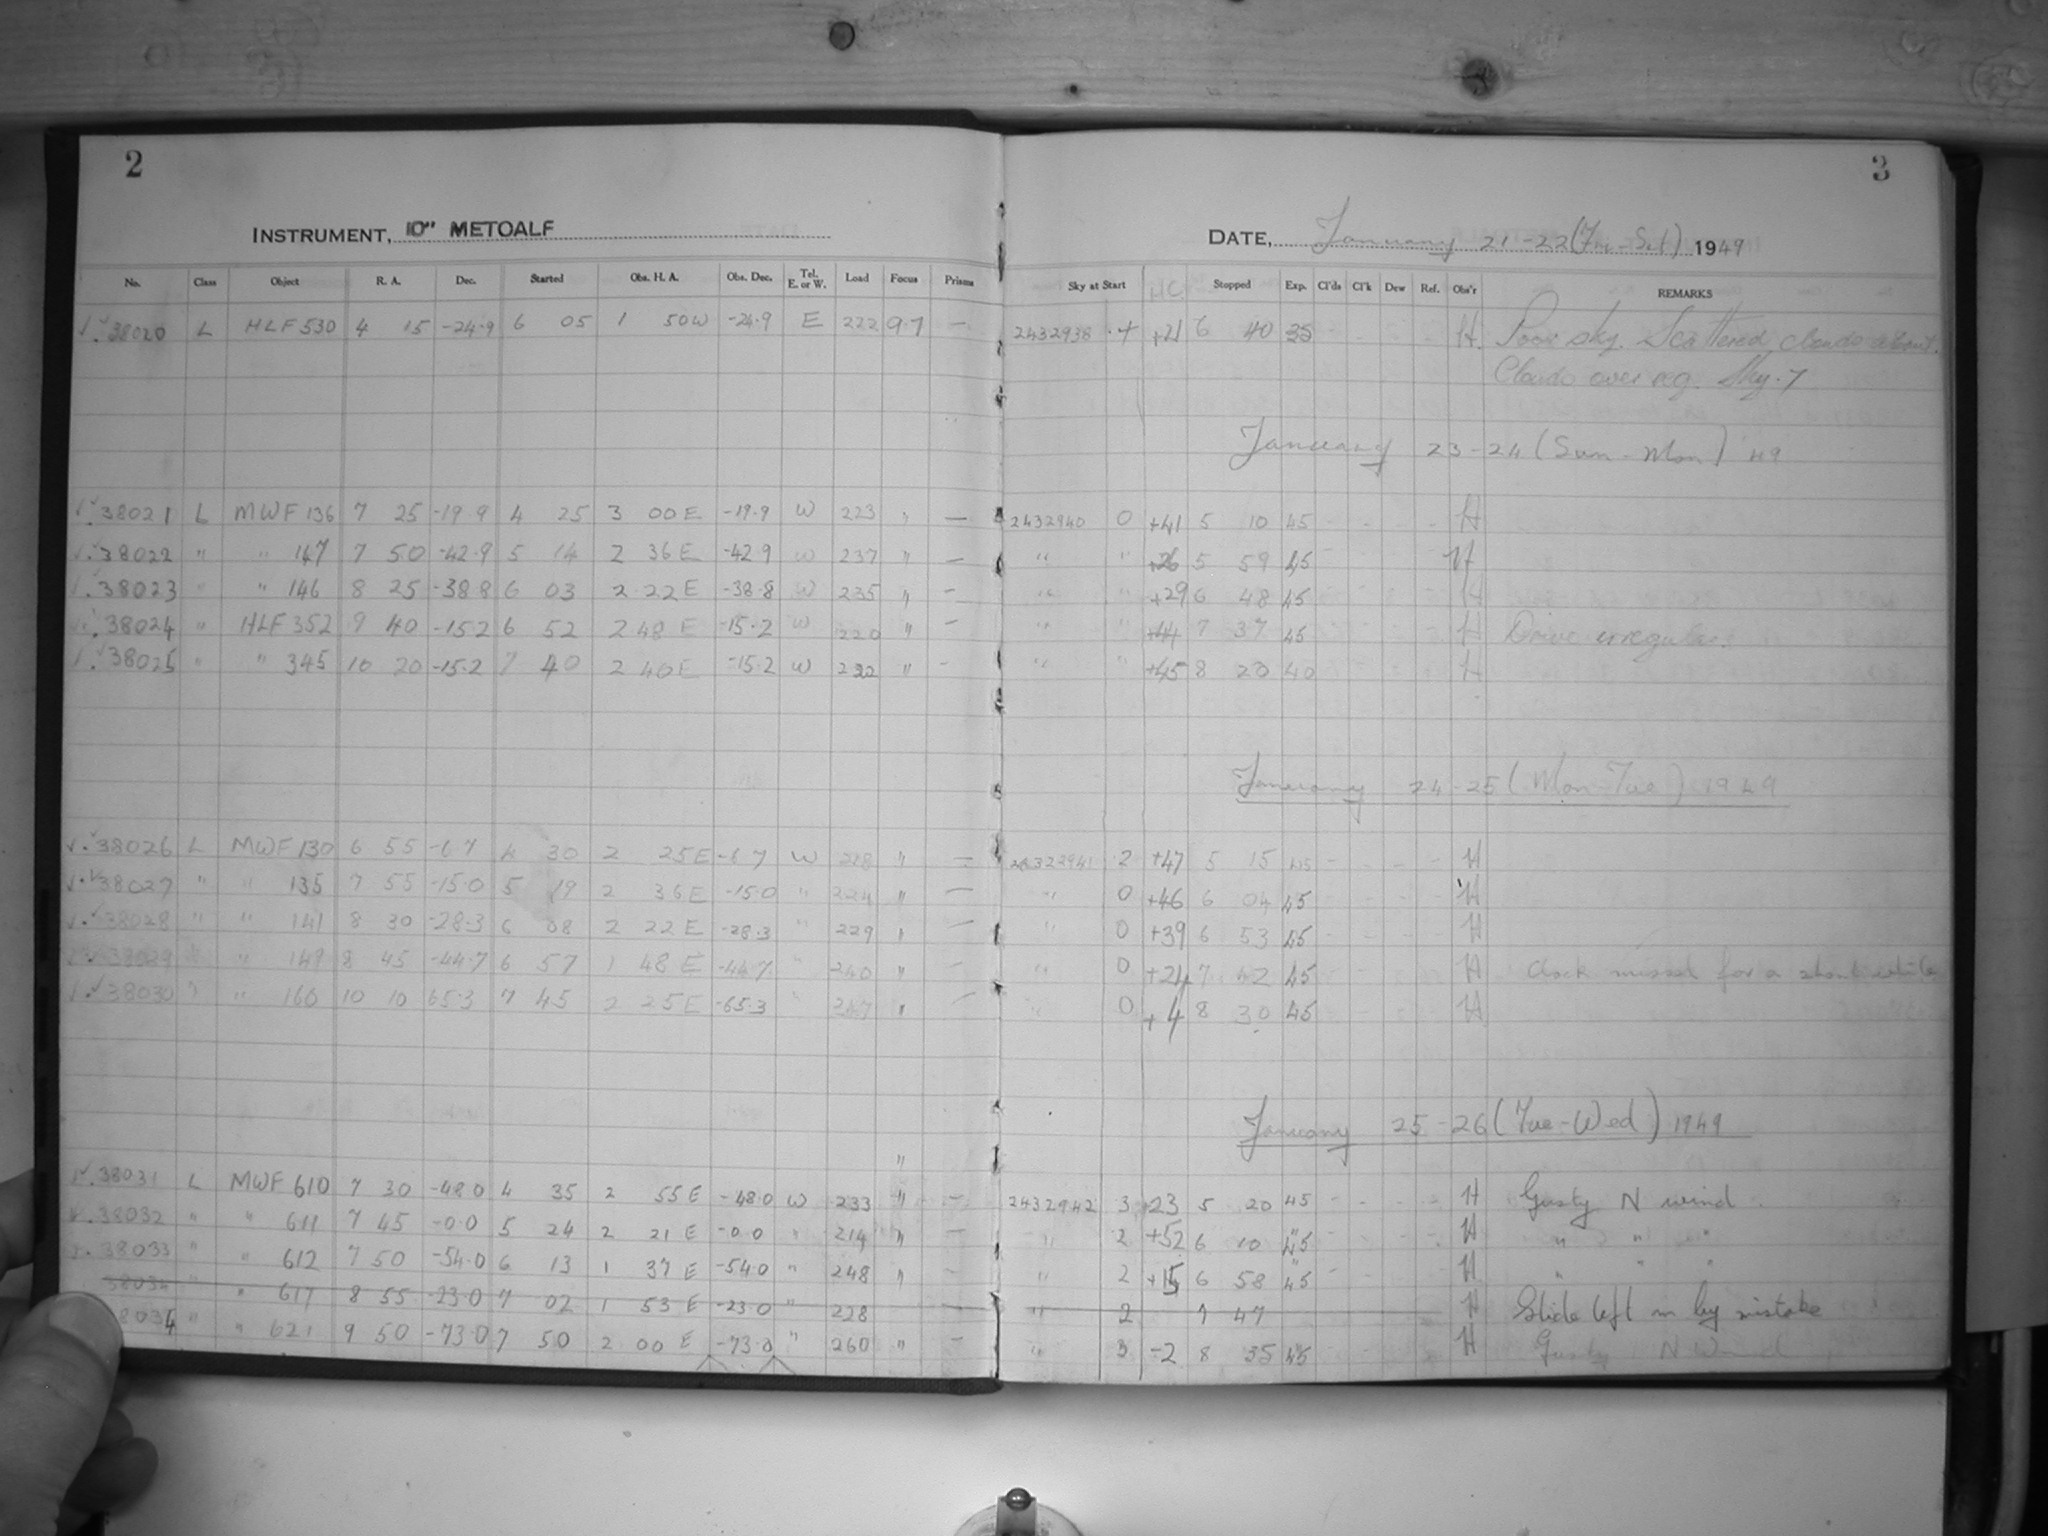 2
INSTRUMENT, 10" METOALF
No. Class Object R. A. Dec. Started Obs. H. A. Obs. Dec. Tel. E. or W. Load Focus Prisms
38020 L HLF 530 4 15 -24.9 6 05 1 50W -24.9 E 222 9.7 —
38021 L MWF 136 7 25 -19 9 4 25 3 00 E -19.9 W 223 " —
38022 " " 147 7 50 -42.9 5 14 2 36 E -42 9 W 237 " —
38023 " " 146 8 25 -38 8 6 03 2 22 E -38.8 W 235 " —
38024 " HLF 352 9 40 -15 2 6 52 2 48 E -15.2 W 220 " —
38025 " " 345 10 20 -15.2 7 40 2 40 E -15.2 W 222 " —
38026 L MWF 130 6 55 -6 7 4 30 2 25 E -6 7 W 228 " —
38027 " " 135 7 55 -15.0 5 19 2 36 E -15.0 " 224 " —
38028 " " 141 8 30 -28.3 6 08 2 22 E -28.3 " 229 " —
38029 " " 149 8 45 -44.7 6 57 1 48 E -44.7 " 240 " —
38030 " " 160 10 10 65.3 7 45 2 25 E -65.3 " 247 " —
"
38031 L MWF 610 7 30 -48 0 4 35 2 55 E -48.0 W 233 " —
38032 " " 611 7 45 -0.0 5 24 2 21 E -0 0 " 214 " —
38033 " " 612 7 50 -54.0 6 13 1 37 E -54.0 " 248 " —
38034 " " 617 8 55 -23.0 7 02 1 53 E -23.0 " 228 —
8034 " " 621 9 50 -73.0 7 50 2 00 E -73.0 " 260 " —
3
DATE, January 21-22 (Fri-Sat) 1949
Sky at Start Stopped Exp. Cl'ds Cl'k Dew Ref. Obs'r REMARKS
2432938 +21 6 40 35 - - - - H. Poor sky. Scattered clouds about.
Clouds over reg. Sky. 7
January 23-24 (Sun-Mon) '49
2432940 0 +41 5 10 45 - - - - H
" " +26 5 59 45 - - - - H
" " +29 6 48 45 - - - - H
" " +44 7 37 45 - - - - H Drive irregular.
" " +45 8 20 40 - - - - H
January 24-25 (Mon-Tue) 1949
24322941 2 +47 5 15 45 - - - - H
" 0 +46 6 04 45 - - - - H
" 0 +39 6 53 45 - - - - H
" 0 +24 7 42 45 - - - - H Clock missed for a short while
" 0 +4 8 30 45 - - - - H
January 25-26 (Tue-Wed) 1949
2432942 3 +23 5 20 45 - - - - H Gusty N wind.
" 2 +52 6 10 45 - - - - H " " "
" 2 +15 6 58 45 - - - - H " " "
" 2 7 47 H Slide left in by mistake
" 3 -2 8 35 45 - - - - H Gusty N Wind